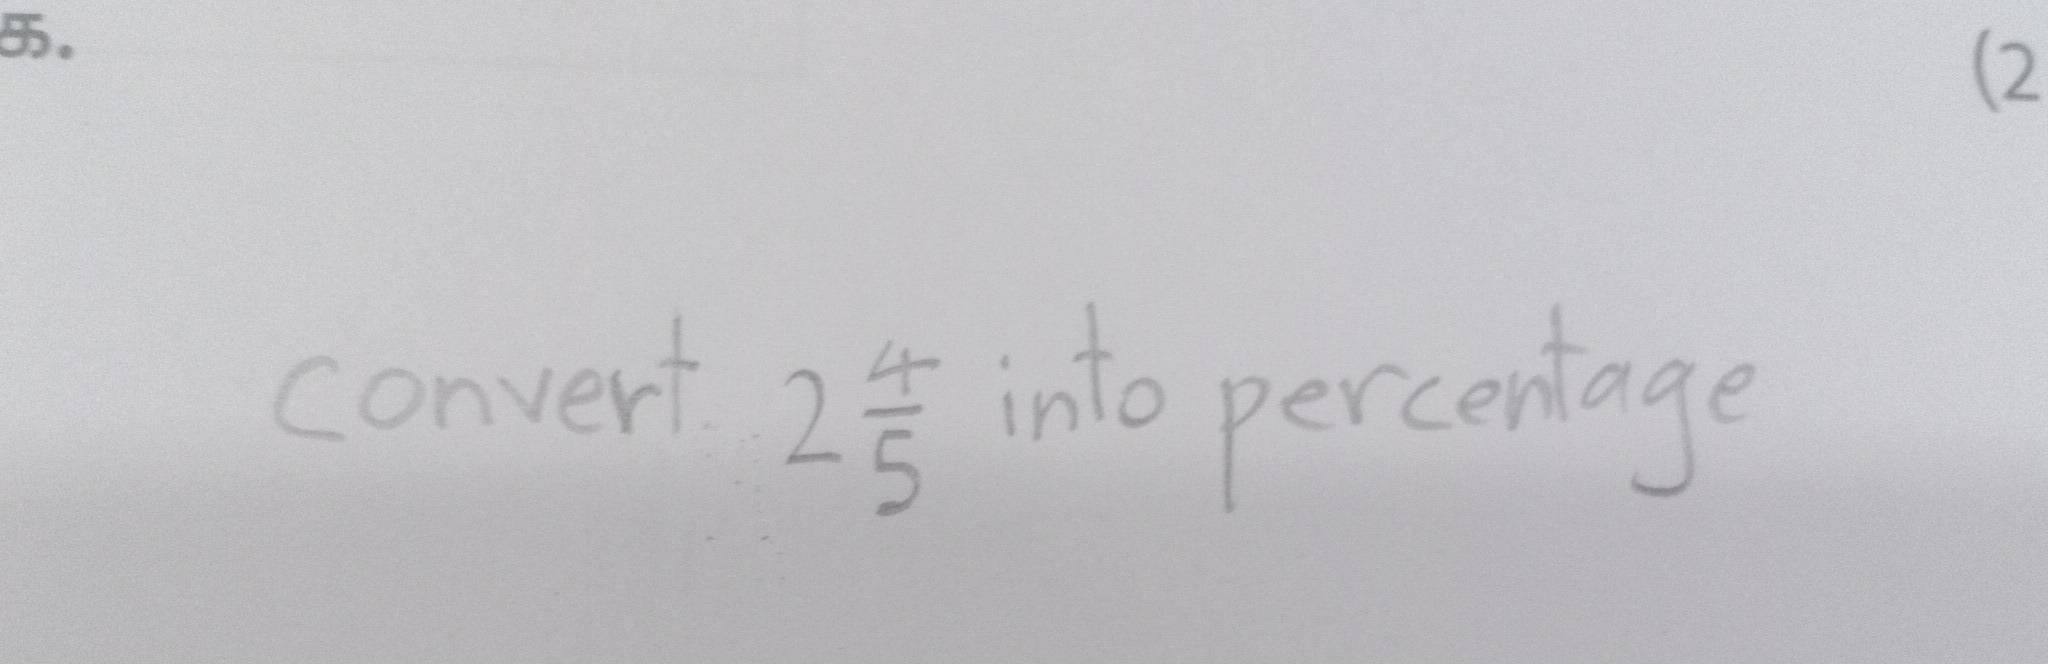 க.
(2
convert 2 4/5 into percentage